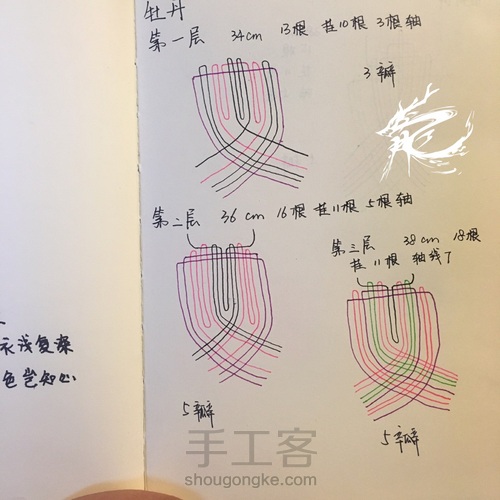 牡丹
第一层 34cm 13根 挂10根 3根轴
3瓣
第二层 36cm 16根 挂11根 5根轴
第三层 38cm 18根
挂11根 轴线7
5瓣
5瓣
衣浅复深
色岂知心
手工客
shougongke.com